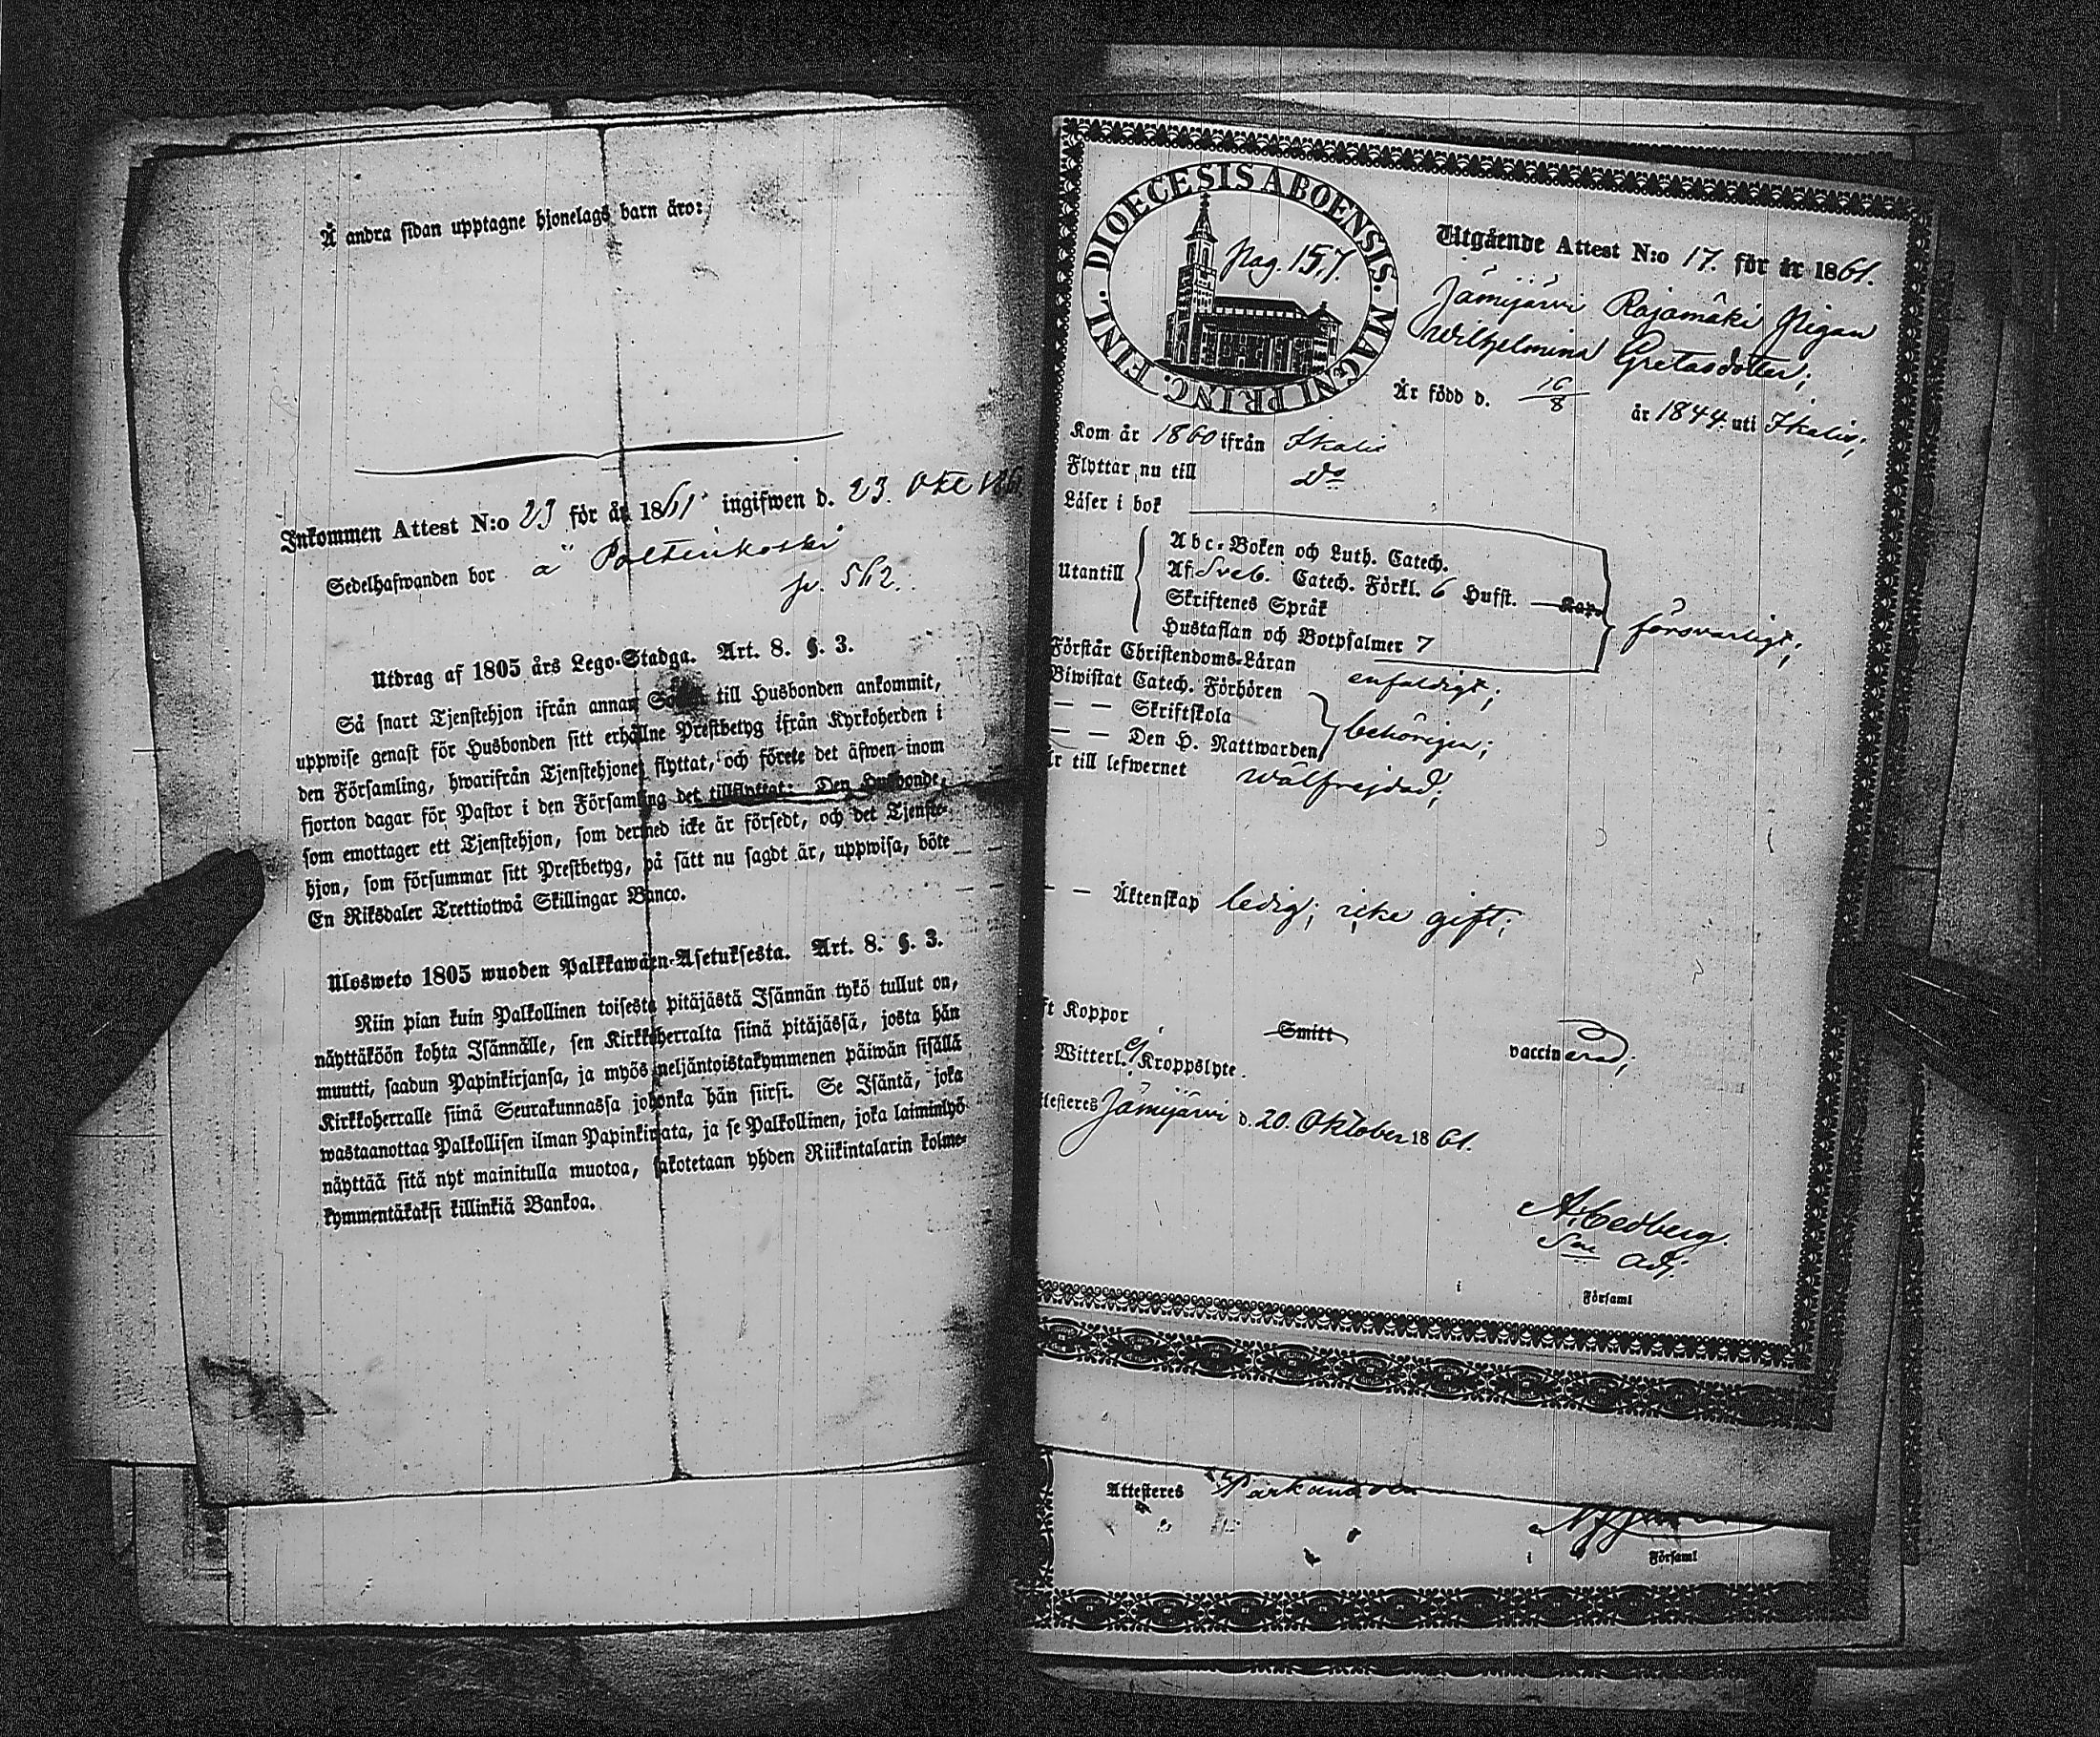 Å andra sidan upptagne hjonelags barn äro:
Inkommen Attest N:o 23 för år 1861 ingifwen d. 23. Okt 186
Sedelhafwanden bor å Poltinkoski
p. 562.
Utdrag af 1805 års Lego-Stadga. Art. 8. §. 3.
Så snart Tjenstehjon ifrån annan till Husbonden ankommit,
uppwise genast för Husbonden sitt erhållne Prestbetyg ifrån Kyrkoherden i
den Församling, hwarifrån Tjenstehjonet flyttat, och förete det äfwen inom
fjorton dagar för Pastor i den Församling det tillflyttat: Den Husbonde,
som emottager ett Tjenstehjon, som dermed icke är försedt, och det Tjenste-
hjon, som försummar sitt Prestbetyg, på sätt nu sagdt är, uppwisa, böte
En Riksdaler Trettiotwå Skillingar Banco.
Ulosweto 1805 wuoden Palkkawäen-Asetuksesta. Art. 8. §. 3.
Niin pian kuin Palkollinen toisesta pitäjästä Isännän tykö tullut on,
näyttäköön kohta Isännälle, sen Kirkkoherralta siinä pitäjässä, josta hän
muutti, saadun Papinkirjansa, ja myös neljäntoistakymmenen päiwän sisällä
Kirkkoherralle siinä Seurakunnassa johonka hän siirsi. Se Isäntä, joka
wastaanottaa Palkollisen ilman Papinkirjata, ja se Palkollinen, joka laiminlyö
näyttää sitä nyt mainitulla muotoa, sakotetaan yhden Riikintalarin kolme-
kymmentäkaksi killinkiä Bankoa.
DIOECESIS ABOENSIS. MAGNI PRINC. FINL.
Pag. 157.
Utgående Attest N:o 17. för år 1861.
Jämijärvi Rajamäki Pigan
Wilhelmina Gretasdotter;
Är född d. 16/8 år 1844. uti Ikalis;
Kom år 1860 ifrån Ikalis
Flyttar nu till Do
Läser i bok
Utantill
Abc-Boken och Luth. Catech.
Af Sveb. Catech. Förkl. 6 Hufst. Kap.
Skriftenes Språk
Hustaflan och Botpsalmer 7
försvarligt;
Förstår Christendoms-Läran enfaldigt;
Biwistat Catech. Förhören
— — Skriftskola
— — Den H. Nattwarden
behörigen;
är till lefwernet wälfrejdad;
— — Äktenskap ledig; icke gift;
ft Koppor Smitt vaccinerad;
Witterl. ej Kroppslyte.
ttesteres Jämijärvi d. 20. Oktober 1861.
A. Cedberg.
Sac. Adj.
i Församl
Attesteres Parkano den
i Församl